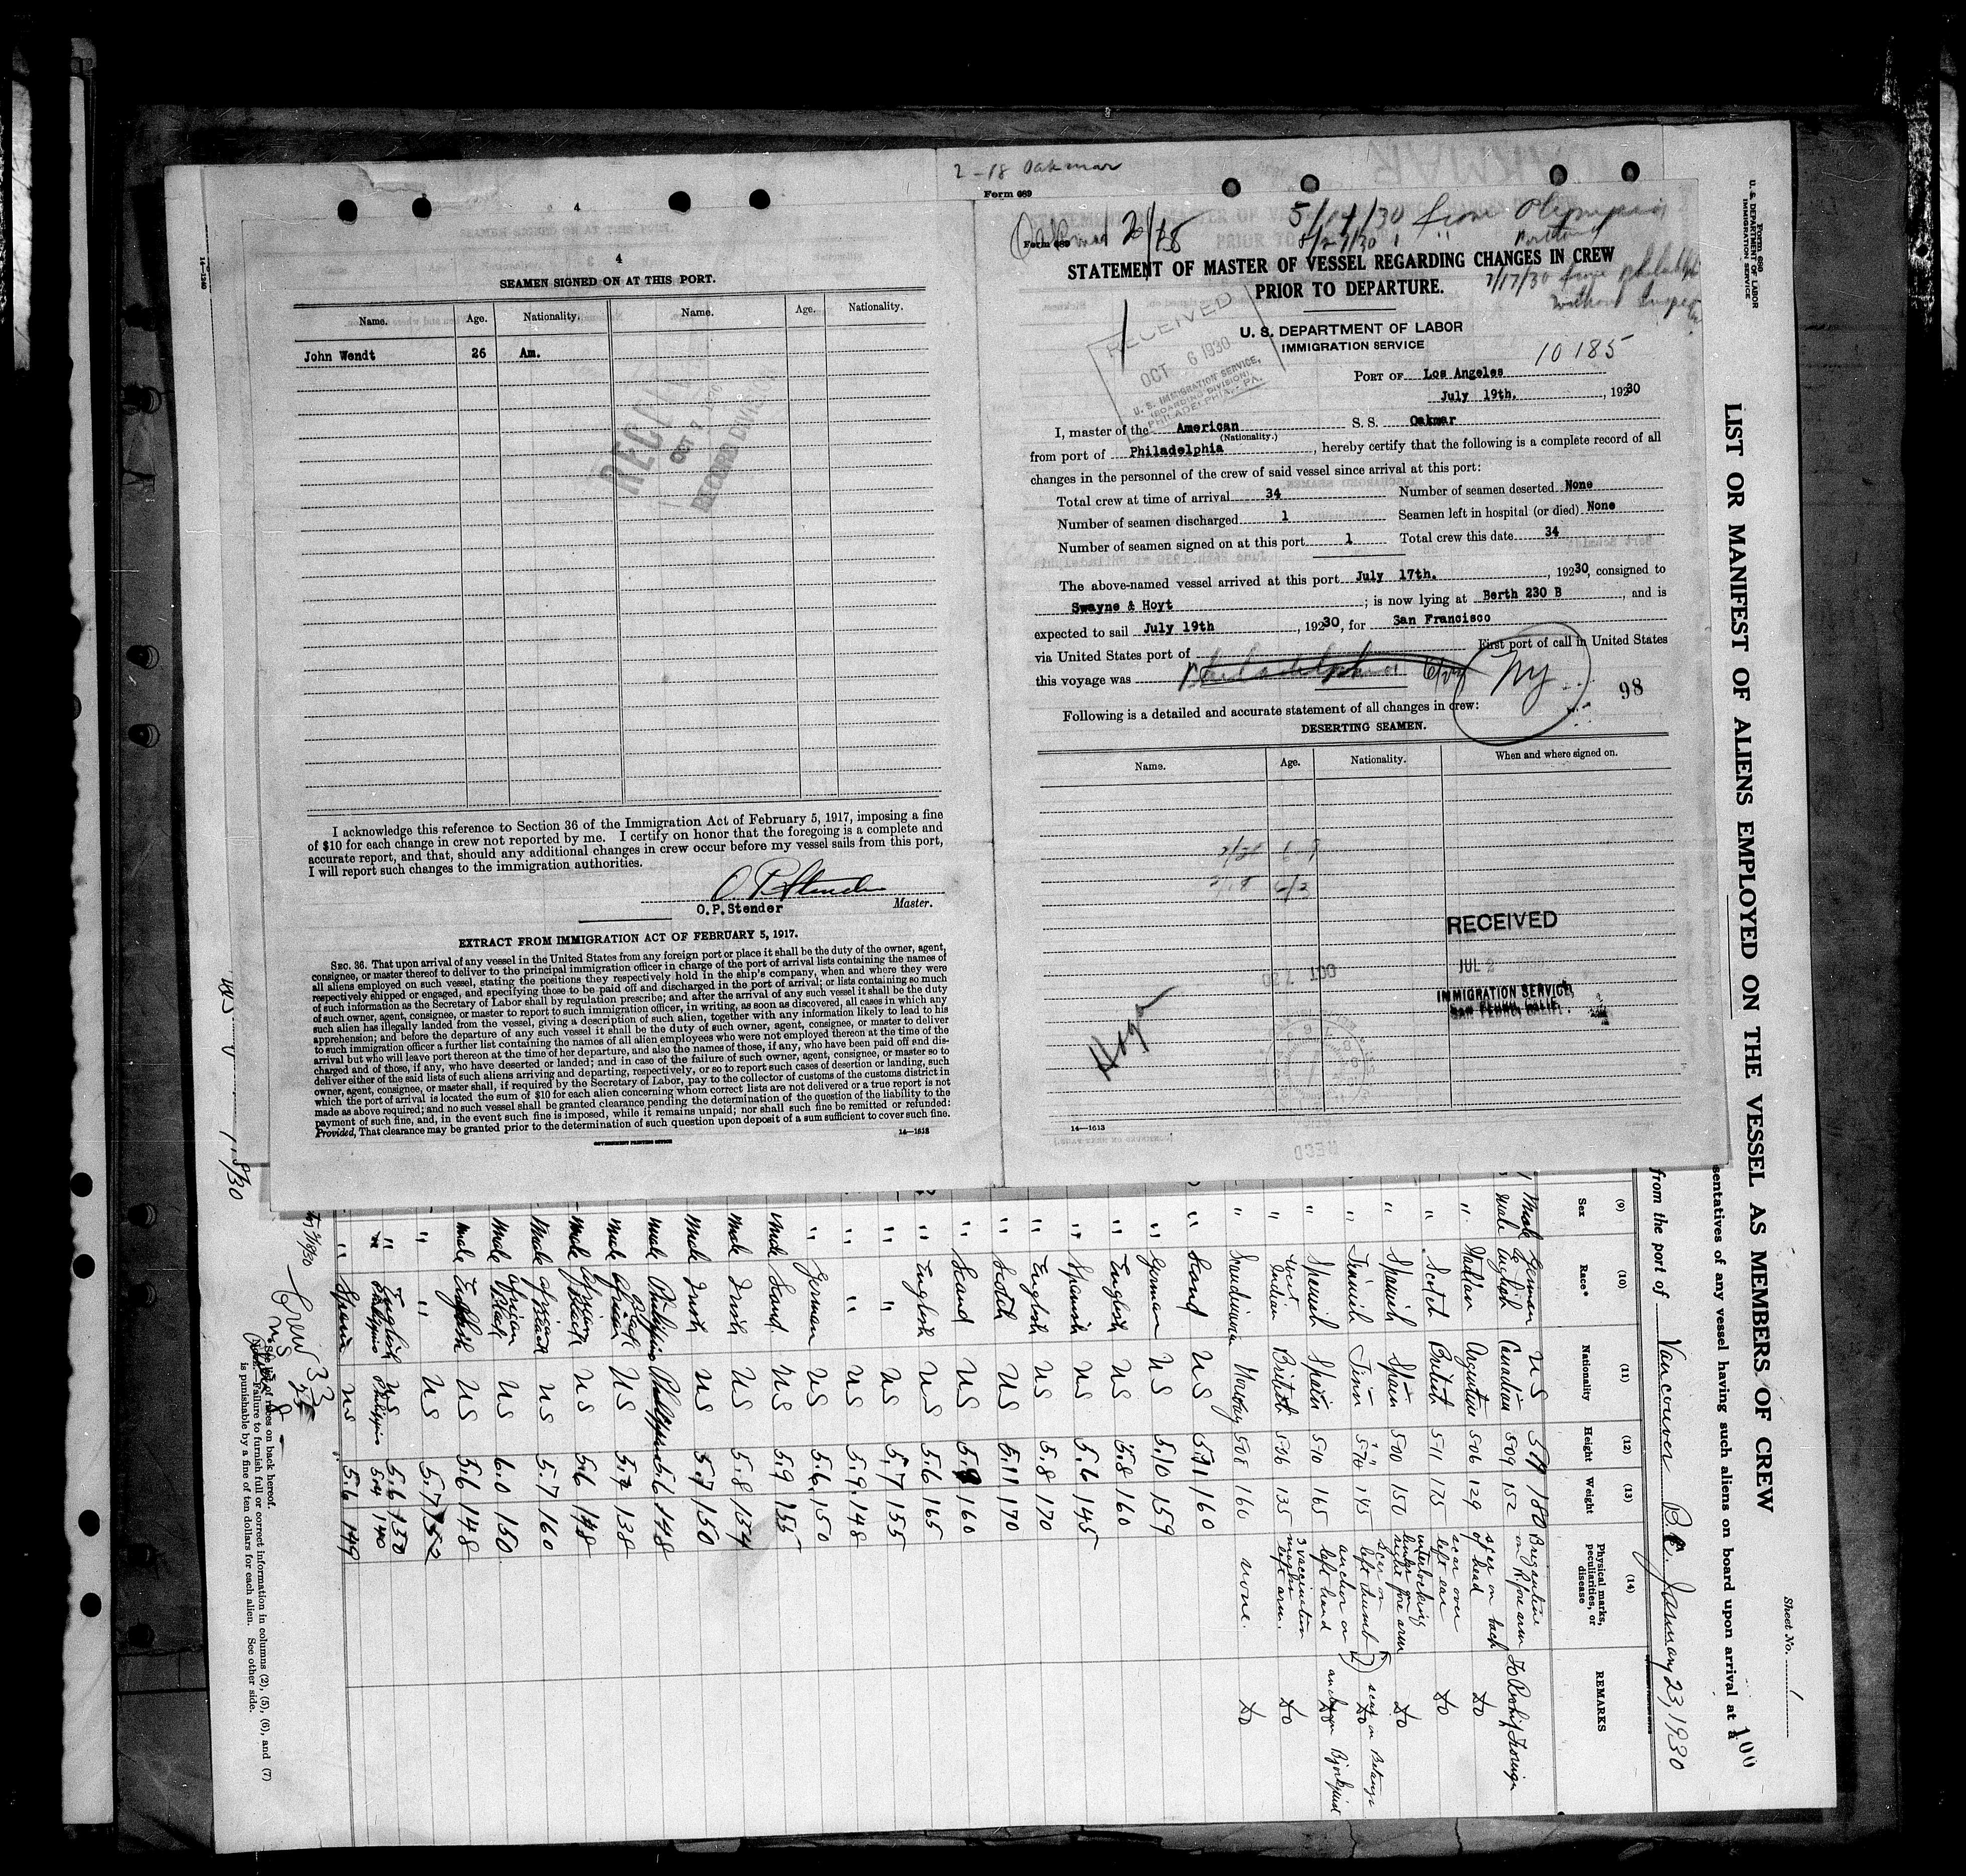 4
4
SEAMEN SIGNED ON AT THIS PORT.
Name. Age. Nationality. Name. Age. Nationality.
John Wendt 26 Am.
I acknowledge this reference to Section 36 of the Immigration Act of February 5, 1917, imposing a fine
of $10 for each change in crew not reported by me. I certify on honor that the foregoing is a complete and
accurate report, and that, should any additional changes in crew occur before my vessel sails from this port,
I will report such changes to the immigration authorities.
O. P. Stender
O.P.Stender Master.
EXTRACT FROM IMMIGRATION ACT OF FEBRUARY 5, 1917.
SEC. 36. That upon arrival of any vessel in the United States from any foreign port or place it shall be the duty of the owner, agent,
consignee, or master thereof to deliver to the principal immigration officer in charge of the port of arrival lists containing the names of
all aliens employed on such vessel, stating the positions they respectively hold in the ship's company, when and where they were
respectively shipped or engaged, and specifying those to be paid off and discharged in the port of arrival; or lists containing so much
of such information as the Secretary of Labor shall by regulation prescribe; and after the arrival of any such vessel it shall be the duty
of such owner, agent, consignee, or master to report to such immigration officer, in writing, as soon as discovered, all cases in which any
such alien has illegally landed from the vessel, giving a description of such alien, together with any information likely to lead to his
apprehension; and before the departure of any such vessel it shall be the duty of such owner, agent, consignee, or master to deliver
to such immigration officer a further list containing the names of all alien employees who were not employed thereon at the time of the
arrival but who will leave port thereon at the time of her departure, and also the names of those, if any, who have been paid off and dis-
charged and of those, if any, who have deserted or landed; and in case of the failure of such owner, agent, consignee, or master so to
deliver either of the said lists of such aliens arriving and departing, respectively, or so to report such cases of desertion or landing, such
owner, agent, consignee, or master shall, if required by the Secretary of Labor, pay to the collector of customs of the customs district in
which the port of arrival is located the sum of $10 for each alien concerning whom correct lists are not delivered or a true report is not
made as above required; and no such vessel shall be granted clearance pending the determination of the question of the liability to the
payment of such fine, and, in the event such fine is imposed, while it remains unpaid; nor shall such fine be remitted or refunded:
Provided, That clearance may be granted prior to the determination of such question upon deposit of a sum sufficient to cover such fine.
GOVERNMENT PRINTING OFFICE 14—1613
2-18 Oakmar
Form 689
Oakmar 2/18 5/14/30 from Olympia
Form 689 8/27/30 " Portland
STATEMENT OF MASTER OF VESSEL REGARDING CHANGES IN CREW
PRIOR TO DEPARTURE.
7/17/30 from philadelphia
without
RECEIVED
OCT 6 1930
U. S. IMMIGRATION SERVICE,
(BOARDING DIVISION)
PHILADELPHIA, PA.
U. S. DEPARTMENT OF LABOR
IMMIGRATION SERVICE
10185
PORT OF Los Angeles
July 19th. , 19230
I, master of the American S. S. Oakmar
(Nationality.)
from port of Philadelphia , hereby certify that the following is a complete record of all
changes in the personnel of the crew of said vessel since arrival at this port:
Total crew at time of arrival 34 Number of seamen deserted None
Number of seamen discharged 1 Seamen left in hospital (or died) None
Number of seamen signed on at this port 1 Total crew this date 34
The above-named vessel arrived at this port July 17th. , 19230, consigned to
Swayne & Hoyt ; is now lying at Berth 230 B , and is
expected to sail July 19th , 19230, for San Francisco
via United States port of First port of call in United States
this voyage was Philadelphia NY
98
Following is a detailed and accurate statement of all changes in crew:
DESERTING SEAMEN.
Name. Age. Nationality. When and where signed on.
RECEIVED
JUL 2
IMMIGRATION SERVICE,
SAN PEDRO, CALIF.
14—1613
Form 689
U. S. DEPARTMENT OF LABOR
IMMIGRATION SERVICE
Sheet No. 1
LIST OR MANIFEST OF ALIENS EMPLOYED ON THE VESSEL AS MEMBERS OF CREW
sentatives of any vessel having such aliens on board upon arrival at a
100
from the port of Vancouver B.C. January 23, 1930
(9) (10) (11) (12) (13) (14)
Sex Race* Nationality Height Weight Physical marks, peculiarities, or disease REMARKS
Male German US 5 180
Male English Canadian 509 152
" Italian Argentine 506 129 scar on back of head Do
" Scotch British 511 175 scar over left ear Do
" Spanish Spain 500 150 Do
" 145 Do
" Spanish Spain 510 165 anchor on left hand
" West Indian British 506 135 3 vaccination marks left arm. Do
" Scandinavian Norway 508 160 none. Do
" Scand US 5.11 160
" German US 5.10 159
" English US 5.8 160
" Spanish US 5.6 145
" English US 5.8 170
" Scotch US 5.11 170
" Scand US 160
" English US 5.6 165
" " US 5.7 155
" " US 5.9 148
" German US 5.6 150
Male Scand. US 5.9 155
Male Irish US 5.8 154
Male Irish US 5.7 150
Male Philippine Philippine 5.6 148
Male African Black US 5.7 138
Male African Black US 5.6 148
Male African Black US 5.7 160
Male African Black US 6.0 150
Male English US 5.6 148
" " US 5.7 152
" English US 5.6 150
Philippino Philippine 5.04 140
" Spanish US 5.6 149
Crew 33
* See list of races on back hereof.
NOTE.—Failure to furnish full or correct information in columns (2), (5), (6), and (7)
is punishable by a fine of ten dollars for each alien. See other side.